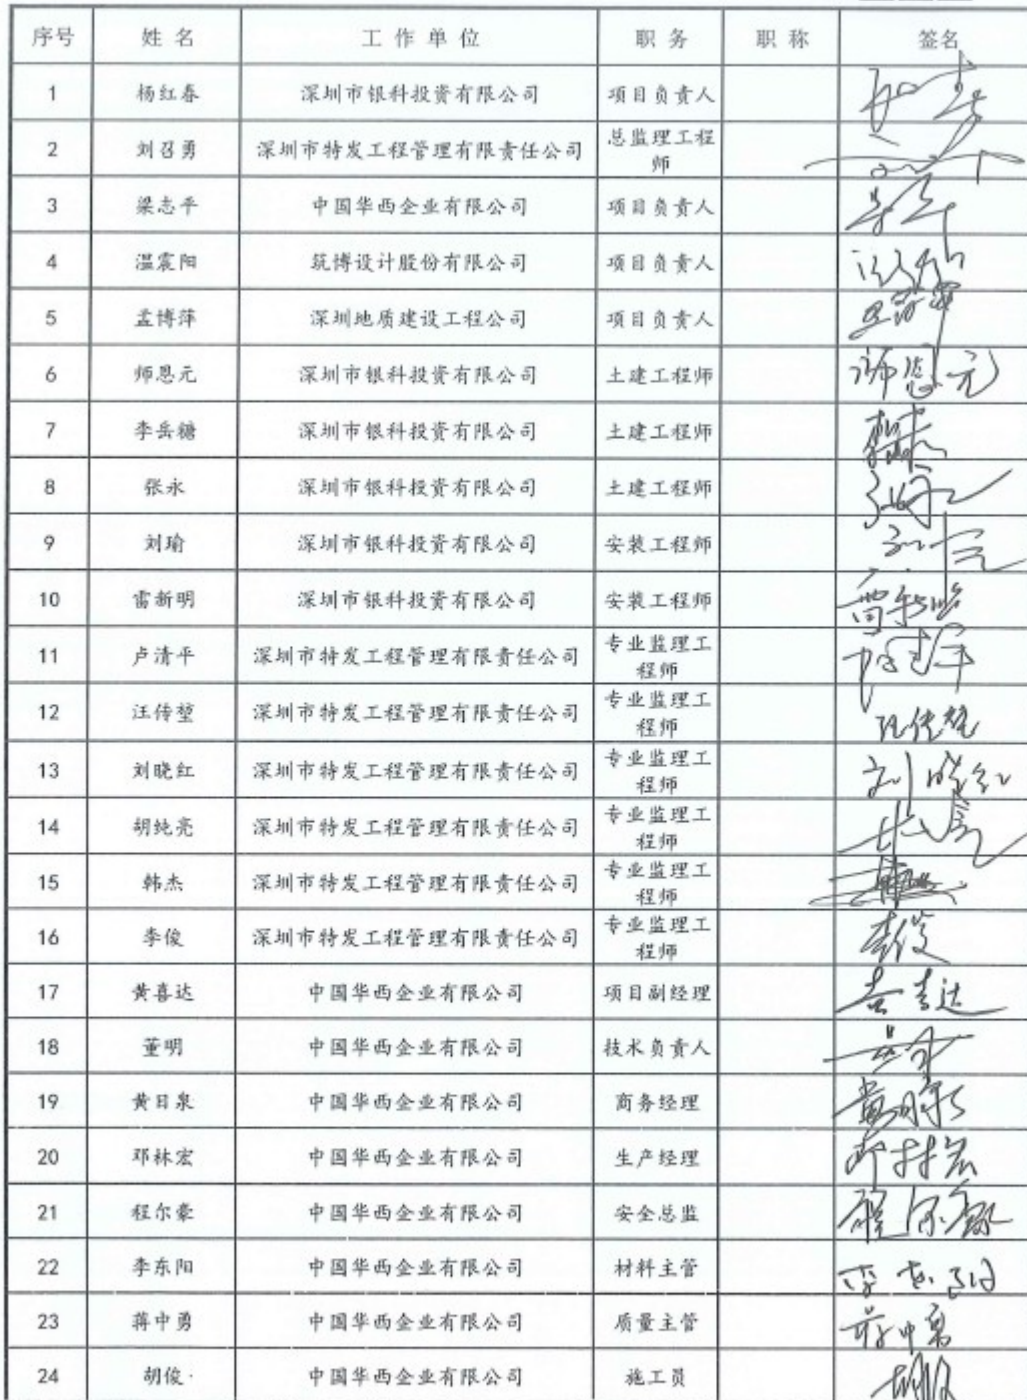 序号 姓名 工作单位 职务 职称 签名
1 杨红春 深圳市银科投资有限公司 项目负责人
2 刘召勇 深圳市特发工程管理有限责任公司 总监理工程
师
3 梁志平 中国华西企业有限公司 项目负责人
4 温震阳 筑博设计股份有限公司 项目负责人
5 孟博萍 深圳地质建设工程公司 项目负责人
6 师恩元 深圳市银科投资有限公司 土建工程师 师恩元
7 李岳糖 深圳市银科投资有限公司 土建工程师
8 张永 深圳市银科投资有限公司 土建工程师 张永
9 刘瑜 深圳市银科投资有限公司 安装工程师
10 雷新明 深圳市银科投资有限公司 安装工程师 雷新明
11 卢清平 深圳市特发工程管理有限责任公司 专业监理工
程师
12 汪传堃 深圳市特发工程管理有限责任公司 专业监理工
程师
13 刘晓红 深圳市特发工程管理有限责任公司 专业监理工 刘晓红
程师
14 胡纯亮 深圳市特发工程管理有限责任公司 专业监理工
程师
15 韩杰 深圳市特发工程管理有限责任公司 专业监理工
程师
16 李俊 深圳市特发工程管理有限责任公司 专业监理工 李俊
程师
17 黄喜达 中国华西企业有限公司 项目副经理 黄喜达
18 董明 中国华西企业有限公司 技术负责人
19 黄日泉 中国华西企业有限公司 商务经理
20 邓林宏 中国华西企业有限公司 生产经理 邓林宏
21 程尔豪 中国华西企业有限公司 安全总监 程尔豪
22 李东阳 中国华西企业有限公司 材料主管 李东阳
23 蒋中勇 中国华西企业有限公司 质量主管 蒋中勇
24 胡俊 中国华西企业有限公司 施工员